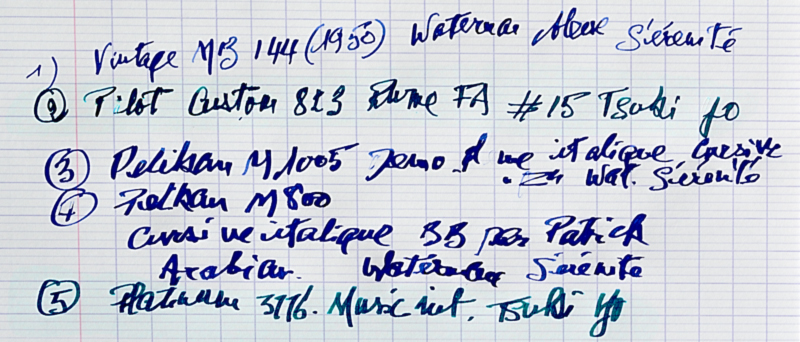 1) Vintage MB 144 (1950) Waterman Sérénité
② Pilot Custom 823 Plume FA #15 Tsuki yo
③ Pelikan M1005 Demo italique cursive
Wat. Sérénité
④ Pelikan M800
cursive italique BB par Patrick
Arabian. Waterman Sérénité
⑤ Platinum 3776. Music nib. Tsuki yo